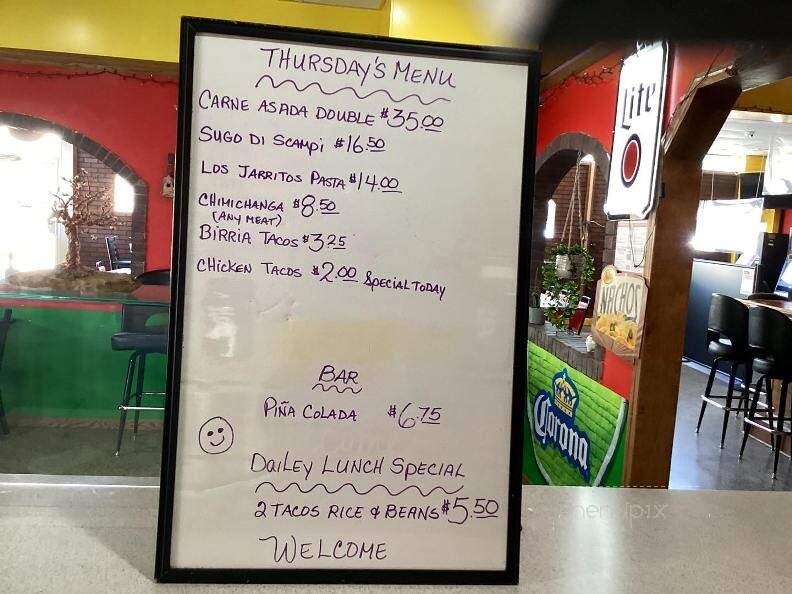 THURSDAY'S MENU
CARNE ASADA DOUBLE $35.00
SUGO DI SCAMPI $16.50
LOS JARRITOS PASTA $14.00
CHIMICHANGA $8.50
(ANY MEAT)
BIRRIA TACOS $3.25
CHICKEN TACOS $2.00 SPECIAL TODAY
BAR
PIÑA COLADA $6.75
DAILEY LUNCH SPECIAL
2 TACOS RICE & BEANS $5.50
WELCOME
Lite
NACHOS
Corona